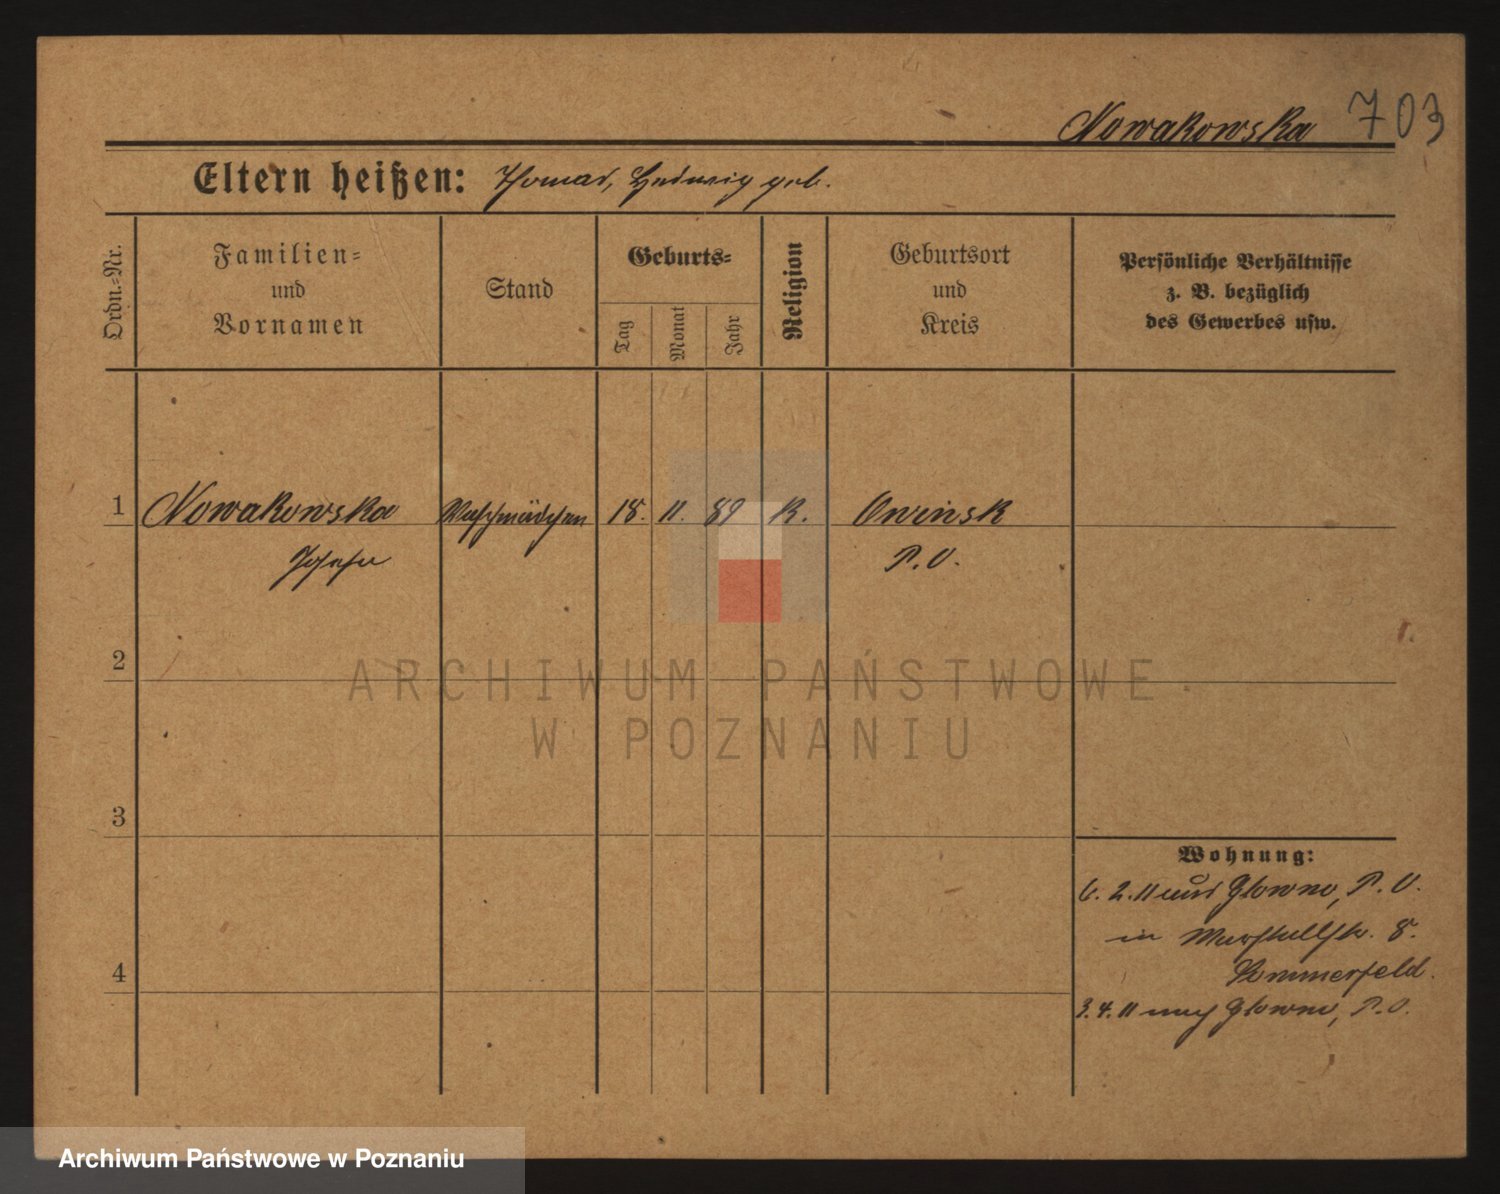 Nowakowska 703
Eltern heißen: Thomas, Hedwig geb.
Ordn.-Nr.
Familien-
und
Vornamen
Stand
Geburts-
Tag
Monat
Jahr
Religion
Geburtsort
und
Kreis
Persönliche Verhältnisse
z. B. bezüglich
des Gewerbes usw.
1 Nowakowska Waschmädchen 18. 11. 89 K. Owinsk
Josefa P. O.
2
3
4
Wohnung:
6. 2. 11 aus Glowno, P. O.
in 8.
Sommerfeld.
3. 4. 11 nach Glowno, P. O.
ARCHIWUM PAŃSTWOWE
W POZNANIU
Archiwum Państwowe w Poznaniu